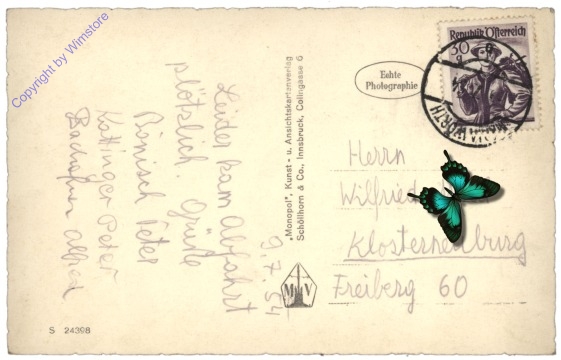 Copyright by Wimstore
9.7.54
Leider kam Abfahrt
plötzlich. Grüße
Bönisch Peter
Kattinger Peter
Alfred
S 24398
„Monopol", Kunst- u. Ansichtskartenverlag
Schöllhorn & Co., Innsbruck, Colingasse 6
M V
Echte
Photographie
Republik Österreich
30
WÖRTH
Herrn
Wilfried
Klosterneuburg
Freiberg 60